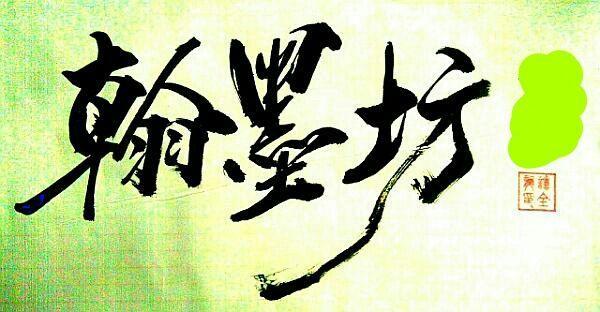 翰墨坊